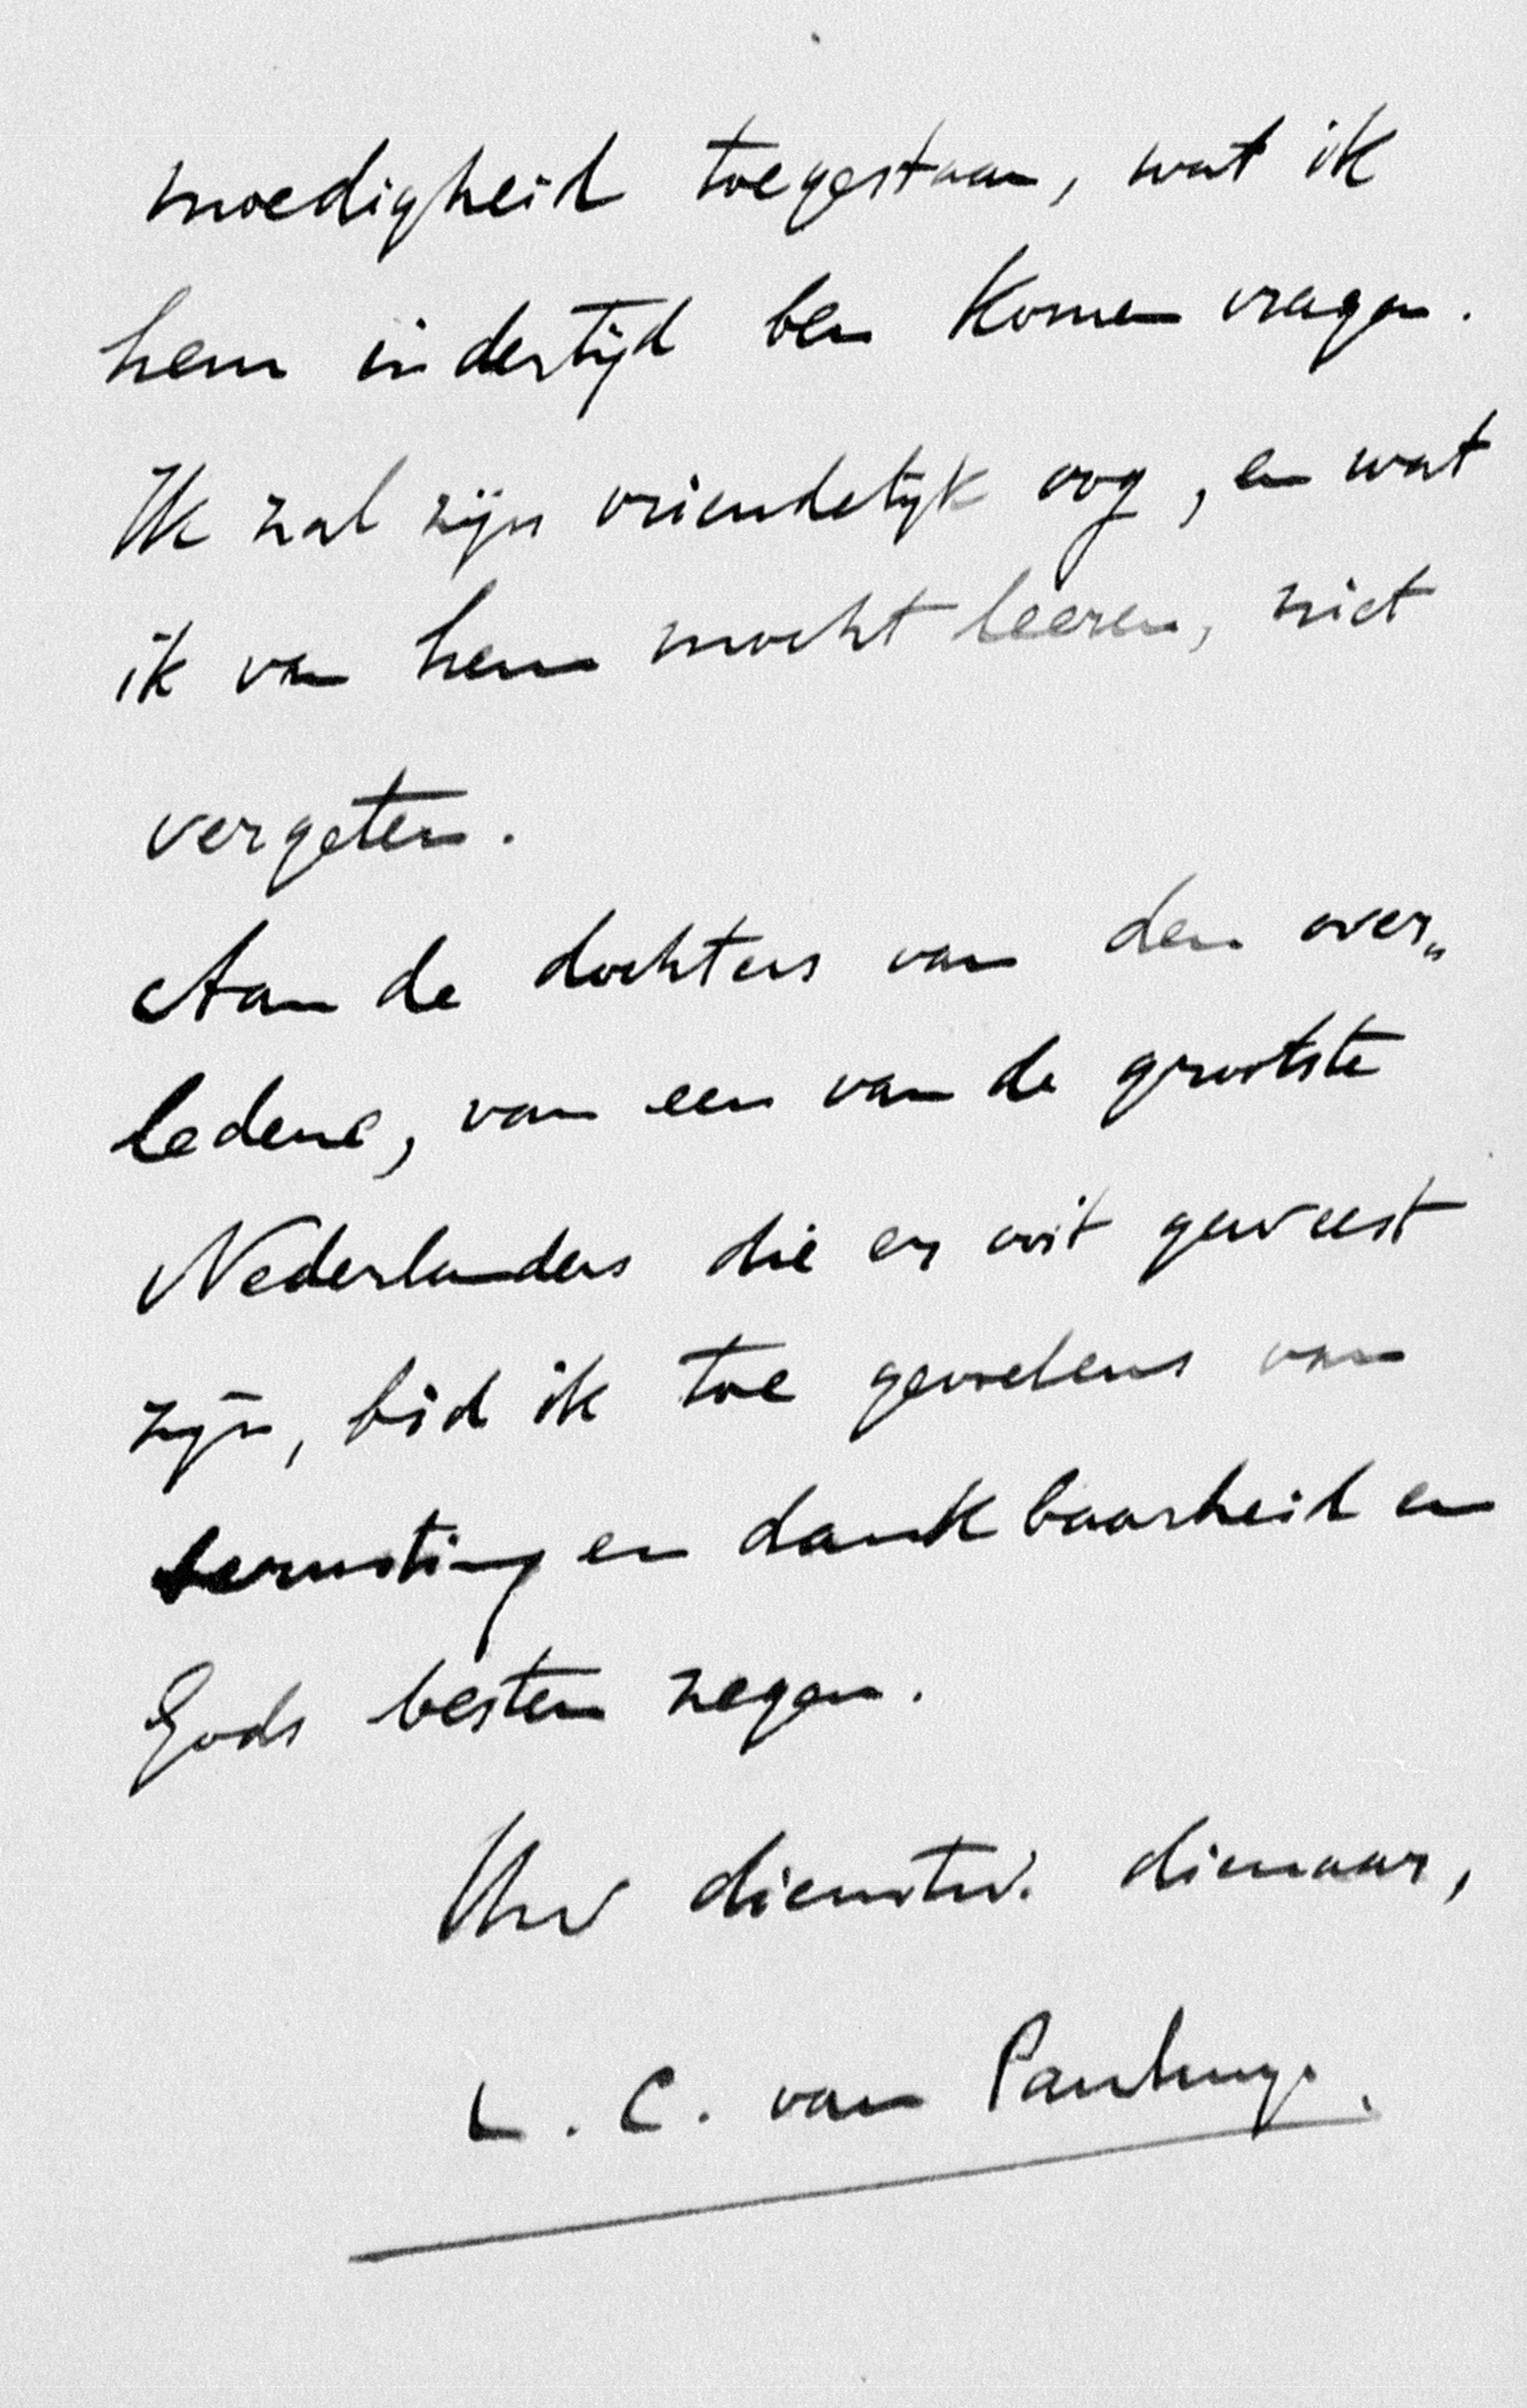 moedigheid toegestaan, wat ik
hem indertijd ben komen vragen.
Ik zal zijn vriendelijk oog, en wat
ik van hem mocht leeren, niet
vergeten.
Aan de dochters van den over„
ledene, van een van de grootste
Nederlanders die er ooit geweest
zijn, bid ik toe gevoelens van
berusting en dankbaarheid en
Gods besten zegen.
Uw dienstw. dienaar,
L. C. van Panhuys.